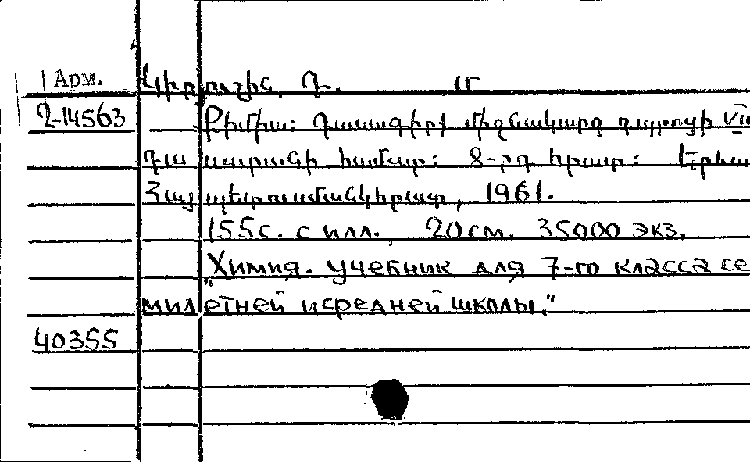 Арм. Կիրյուշկին, Դ. Մ
2-14563 Քիմիա: Դասագիրք միջնակարգ դպրոցի VII
դասարանի համար: 8-րդ հրատ: Երևան
Հայպետուսմանկհրատ, 1961.
155с. с илл. 20см. 35000 экз.
"Химия. учебник для 7-го класса се
милетней и средней школы."
40355